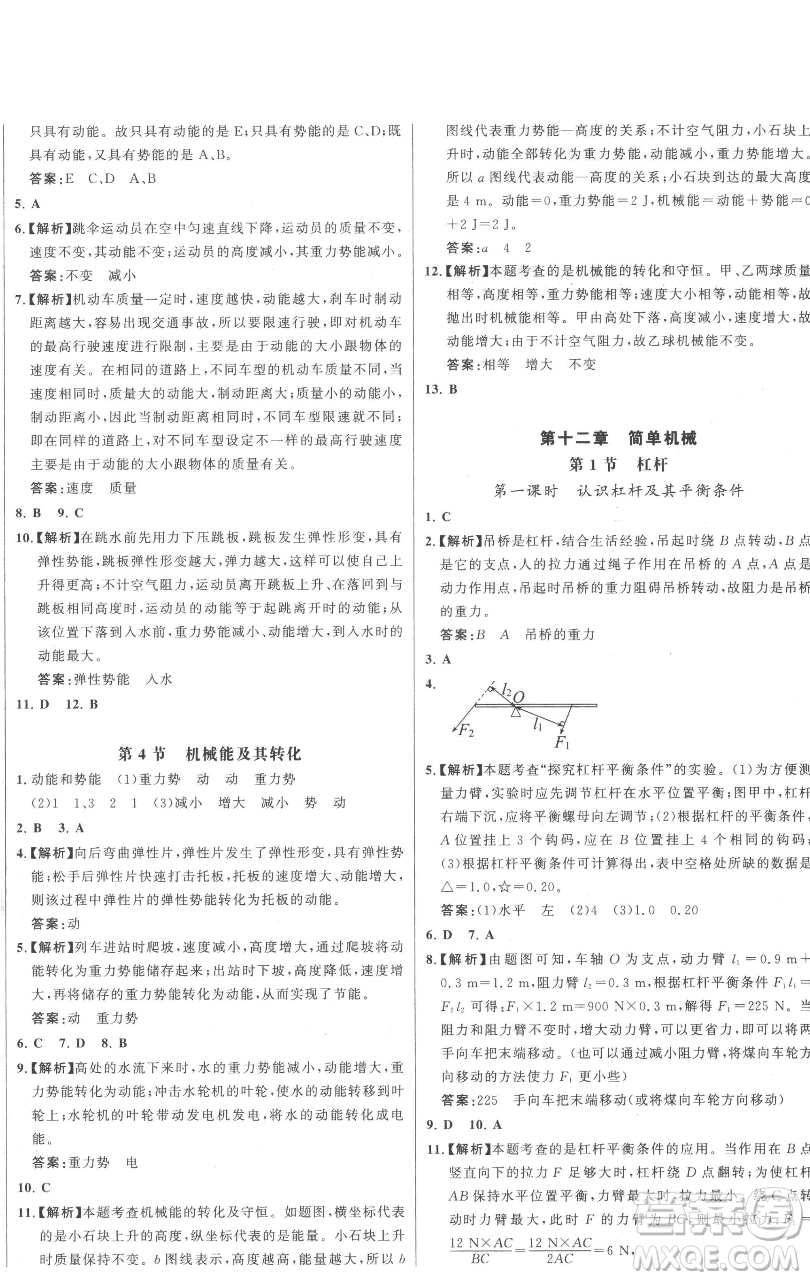 只具有动能。故只具有动能的是 E;只具有势能的是 C、D;既
具有动能,又具有势能的是 A、B。
答案:E　C、D　A、B
5. A
6.【解析】跳伞运动员在空中匀速直线下降,运动员的质量不变,
速度不变,其动能不变;运动员的高度减小,其重力势能减小。
答案:不变　减小
7.【解析】机动车质量一定时,速度越快,动能越大,刹车时制动
距离越大,容易出现交通事故,所以要限速行驶,即对机动车
的最高行驶速度进行限制,主要是由于动能的大小跟物体的
速度有关。在相同的道路上,不同车型的机动车质量不同,当
速度相同时,质量大的动能大,制动距离大;质量小的动能小,
制动距离小,为了使制动距离相同,质量大的行驶速度要小,
即在同样的道路上,对不同车型设定不一样的最高行驶速度
主要是由于动能的大小跟物体的质量有关。
答案:速度　质量
8. B　9. C
10.【解析】在跳水前先用力下压跳板,跳板发生弹性形变,具有
弹性势能,跳板弹性形变越大,弹性势能越大,这样可以使自己上
升得更高;不计空气阻力,运动员离开跳板上升、在落回到与
跳板相同高度时,运动员的动能等于起跳离开时的动能,从
该位置下落到入水前,重力势能减小、动能增大,故入水时的
动能最大。
答案:弹性势能　入水
11. D　12. B
第 4 节　机械能及其转化
1. 动能和势能　(1)重力势　动　动　重力势
(2)1　1、3　2　1　(3)减小　增大　减小　势　动
2. B　3. A
4.【解析】向后弯曲弹性片,弹性片发生了弹性形变,具有弹性势
能;松手后弹性片快速打击托板,托板的速度增大、动能增大,
则该过程中弹性片的弹性势能转化为托板的动能。
答案:动
5.【解析】列车进站时爬坡,速度减小,高度增大,爬坡时将动能
转化为重力势能储存起来;出站时下坡,高度减小,速度增大,
再将储存的重力势能转化为动能,从而实现了节能。
答案:动　重力势
6. C　7. D　8. B
9.【解析】高处的水流下来时,水的重力势能减小,动能增大,重
力势能转化为动能;冲击水轮机的叶轮,使水的动能转移到叶
轮上;水轮机的叶轮带动发电机发电,将水的动能转化成电
能。
答案:重力势　电
10. C
11.【解析】本题考查机械能的转化及守恒。如题图,横坐标代表
的是小石块上升的高度,纵坐标代表的是能量。小石块上升
时质量保持不变。b 图线表示,高度越高,能量越大,所以 b
图线代表重力势能—高度的关系;不计空气阻力,小石块上
升时,动能全部转化为重力势能,动能减小,重力势能增大。
所以 a 图线代表动能—高度的关系;小石块到达的最大高度
是 4 m。动能=0,重力势能=2 J,机械能=动能+势能=0
+2 J=2 J。
答案:a　4　2
12.【解析】本题考查的是机械能的转化和守恒。甲、乙两球质量
相等,高度相等,重力势能相等;速度相等,动能相等,故
抛出时机械能相等。甲由高处下落,高度减小,速度增大,
动能增大;不计空气阻力,故乙球机械能不变。
答案:相等　增大　不变
13. B
第十二章　简单机械
第 1 节　杠杆
第一课时　认识杠杆及其平衡条件
1. C
2.【解析】吊桥是杠杆,结合生活经验,吊起时绕 B 点转动,B 点
是它的支点,人的拉力通过绳子作用在吊桥的 A 点,A 点是
动力作用点,吊起时吊桥的重力阻碍吊桥转动,故阻力是吊桥
的重力。
答案:B　A　吊桥的重力
3. A
4.
l2 O
l1
F2
F1
5.【解析】本题考查“探究杠杆平衡条件”的实验。(1)为方便测
量力臂,实验时应先调节杠杆在水平位置平衡;图甲中,杠杆
右端下沉,应将平衡螺母向左调节;(2)根据杠杆平衡条件,在
A 位置挂上 3 个钩码,应在 B 位置挂上 4 个相同的钩码;
(3)根据杠杆平衡条件可计算得出,表中空格处所缺的数据是
△=1.0,☆=0.20。
答案:(1)水平　左　(2)4　(3)1.0　0.20
6. D　7. A
8.【解析】由题图可知,车轴 O 为支点,动力臂 l₁=0.9 m+
0.3 m=1.2 m,阻力臂 l₂=0.3 m,根据杠杆平衡条件 F₁l₁=
F₂l₂ 可得:F₁×1.2 m=900 N×0.3 m,解得 F₁=225 N。当
阻力和阻力臂不变时,增大动力臂,可以更省力,即可以将两
手向车把末端移动。(也可以通过减小阻力臂,将煤向车轮方
向移动的方法使力 F₁ 更小些)
答案:225　手向车把末端移动(或将煤向车轮方向移动)
9. D　10. A
11.【解析】本题考查的是杠杆平衡条件的应用。当作用在 B 点
竖直向下的拉力 F 足够大时,杠杆绕 D 点翻转;为使杠杆
AB 保持水平位置平衡,力臂最大时,拉力最小。绕 C 点转
动时力臂最大,此时 F 的力臂为 BC,则最小拉力:F=
12 N×AC/BC=12 N×AC/2AC=6 N,